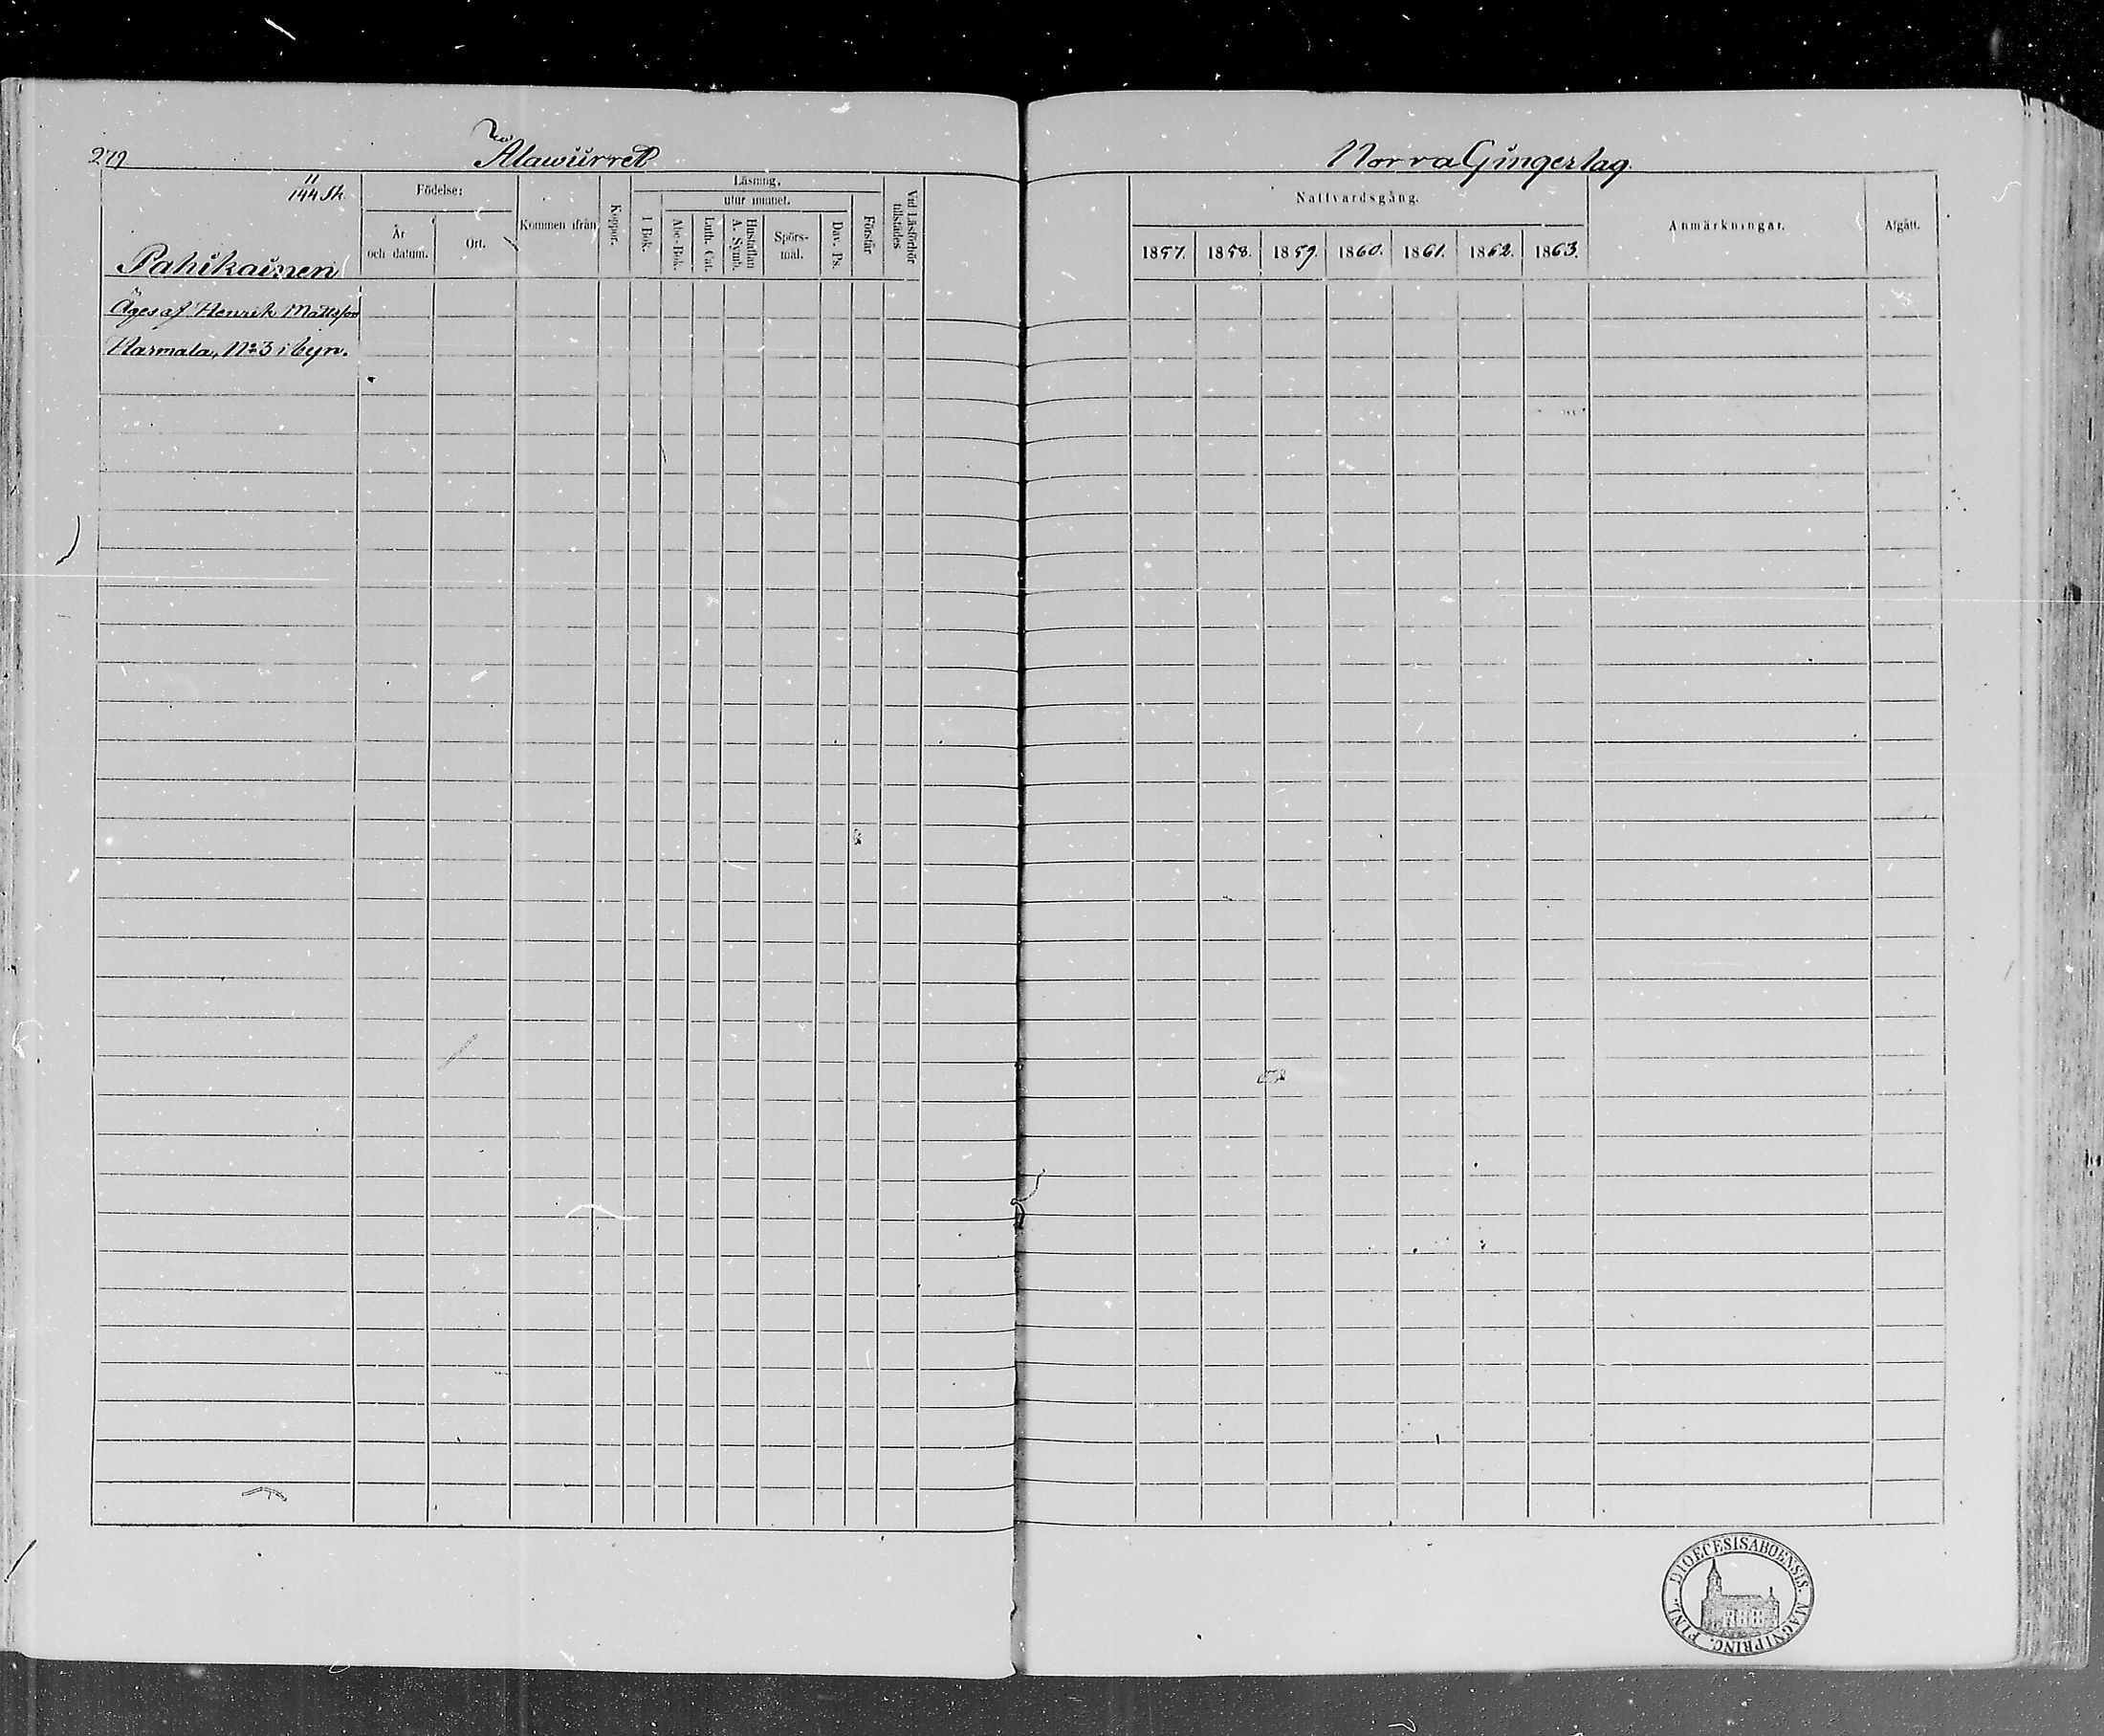 279
Alawürret
Norra Gingerlag.
11
144 Sk.
Pahikainen
Födelse:
År
och datum.
Ort.
Kommen ifrån
Koppor.
Läsning,
I Bok.
utur minnet.
Abc-Bok.
Luth. Cat.
Hustaflan
A. Symb.
Spörs-
mål.
Dav. Ps.
Förstår
Vid Läsförhör
tillstädes
Nattvardsgång.
1857.
1858.
1859.
1860.
1861.
1862.
1863.
Anmärkningar.
Afgått.
Äges af Henrik Mattsson
Harmala, No 3 i byn.
DIOECESIS ABOENSIS. MAGNI PRINC. FINL.